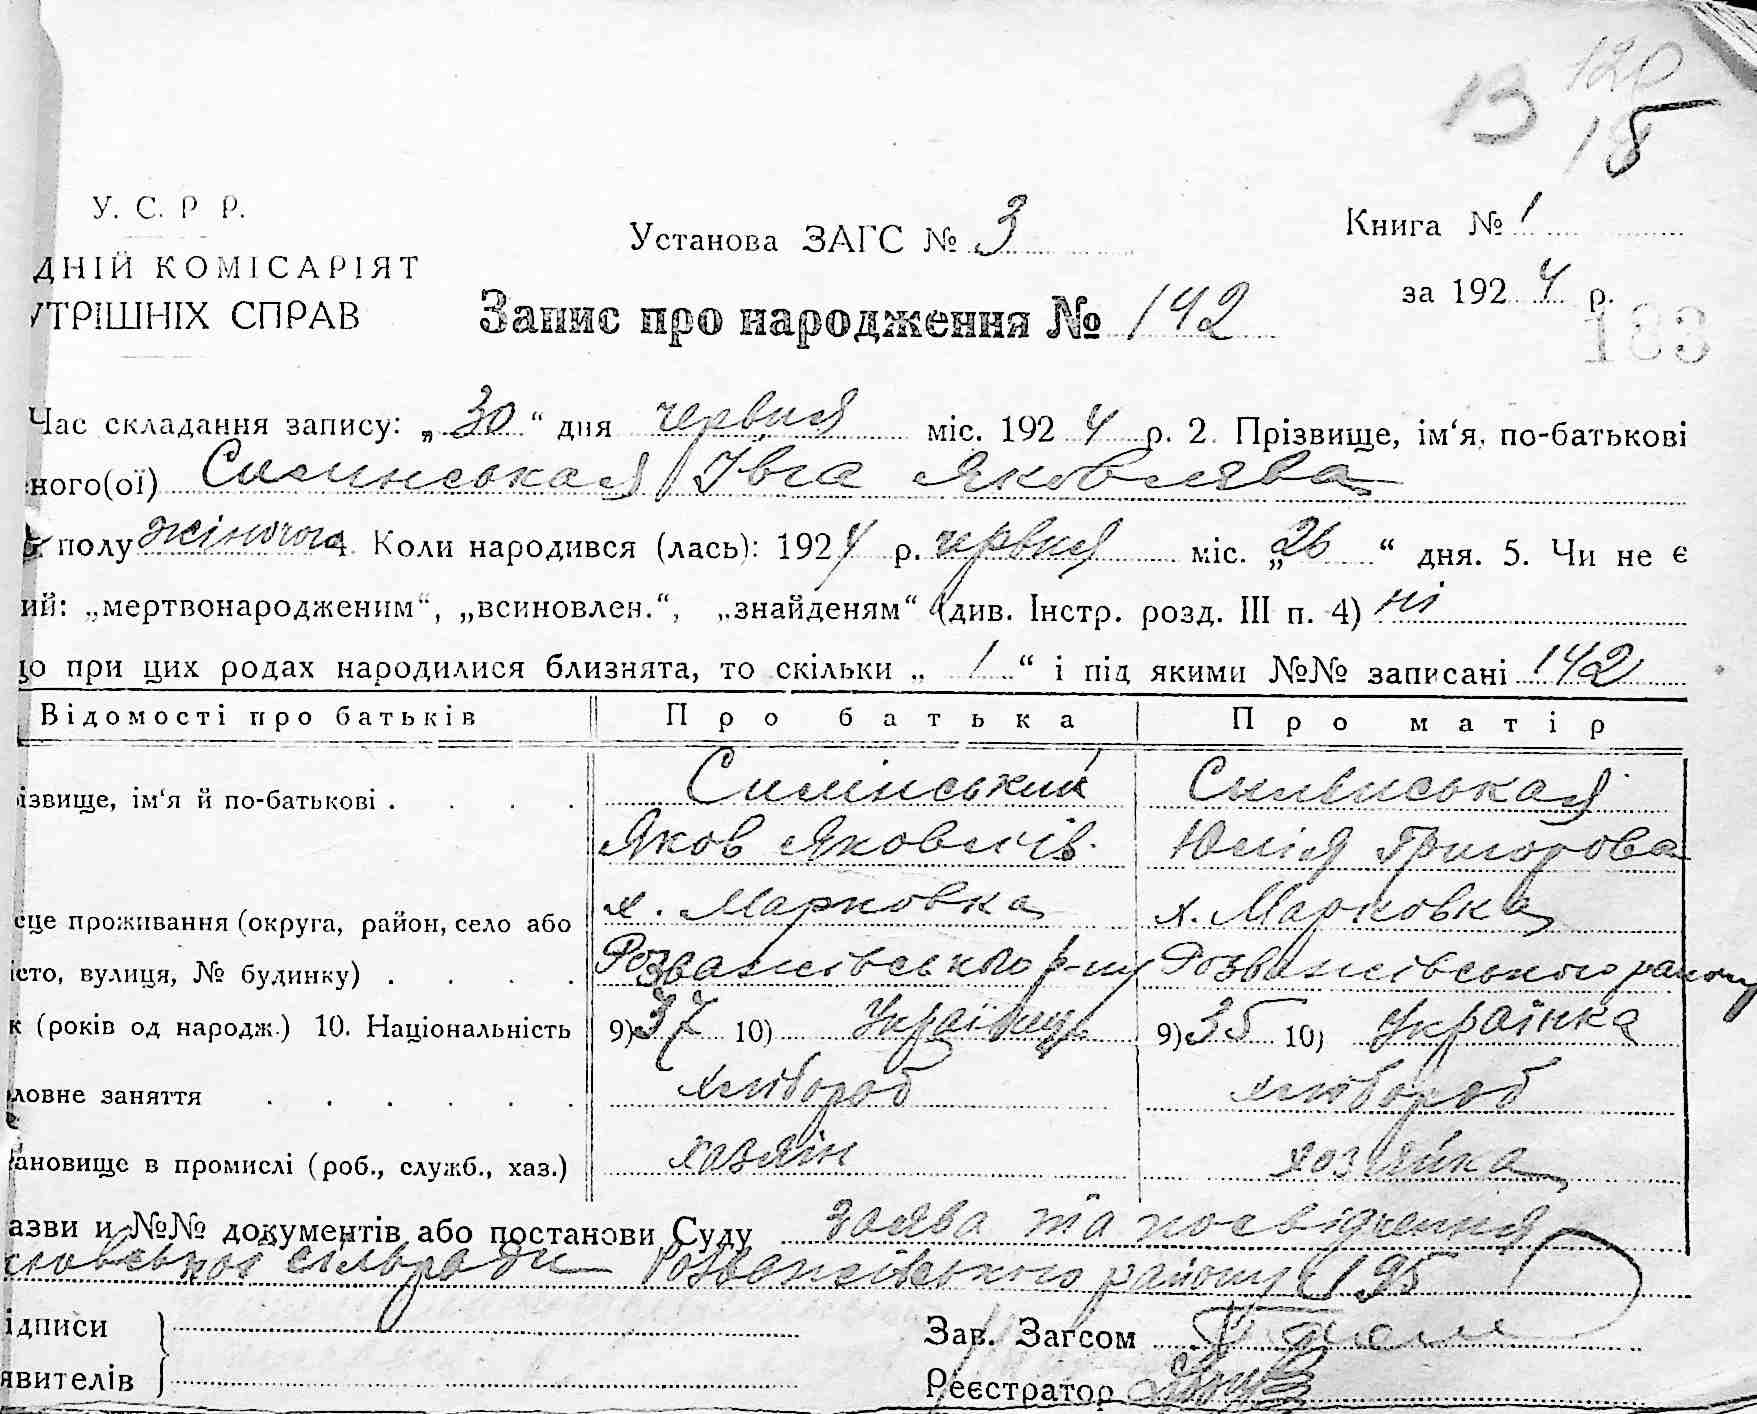 13 120
18
У. С. Р Р.
Установа ЗАГС № 3
Книга № 1
ДНІЙ КОМІСАРІЯТ
УТРІШНІХ СПРАВ
за 1924 р.
Запис про народження № 142
183
Час складання запису: „30“ дня червня міс. 1924 р. 2. Прізвище, ім‘я, по-батькові
ного(ої) Силінськая Івга Яковлява
полу жіночого 4. Коли народився (лась): 1924 р. червня міс. „26“ дня. 5. Чи не є
ий: „мертвонародженим“, „всиновлен.“, „знайденям“ (див. Інстр. розд. III п. 4) ні
що при цих родах народилися близнята, то скільки „1“ і під якими №№ записані 142
Відомості про батьків Про батька Про матір
ізвище, ім‘я й по-батькові . . . . Силінський Силінськая
Яков Яковлів Юлія Григорова
сце проживання (округа, район, село або х. Марковка х. Марковка
істо, вулиця, № будинку) . . . . Розважівського р-ну Розважівського району
к (років од народж.) 10. Національність 9) 37 10) Українець 9) 35 10) Українка
ловне заняття . . . . . . хлібороб хлібороб
ановище в промислі (роб., служб., хаз.) хазяїн хозяйка
азви и №№ документів або постанови Суду заява та посвідчення
сільради Розважівського району 195
ідписи
явителів
Зав. Загсом
Реєстратор